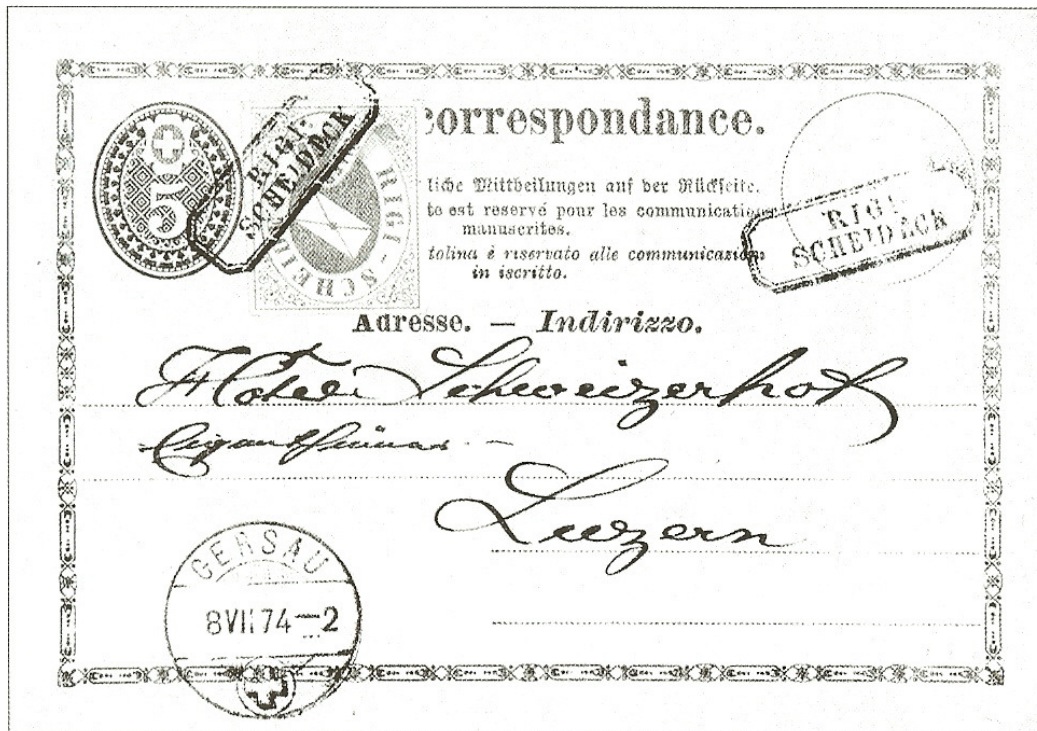 correspondance.
5
RIGI-
SCHEIDECK
RIGI-SCHEID
liche Mittheilungen auf der Rückseite.
to est reservé pour les communications
manuscrites.
tolina è riservato alle communicazioni
in iscritto.
RIGI-
SCHEIDECK
Adresse. — Indirizzo.
Hotel Schweizerhof
Luzern
GERSAU
8VII74—2